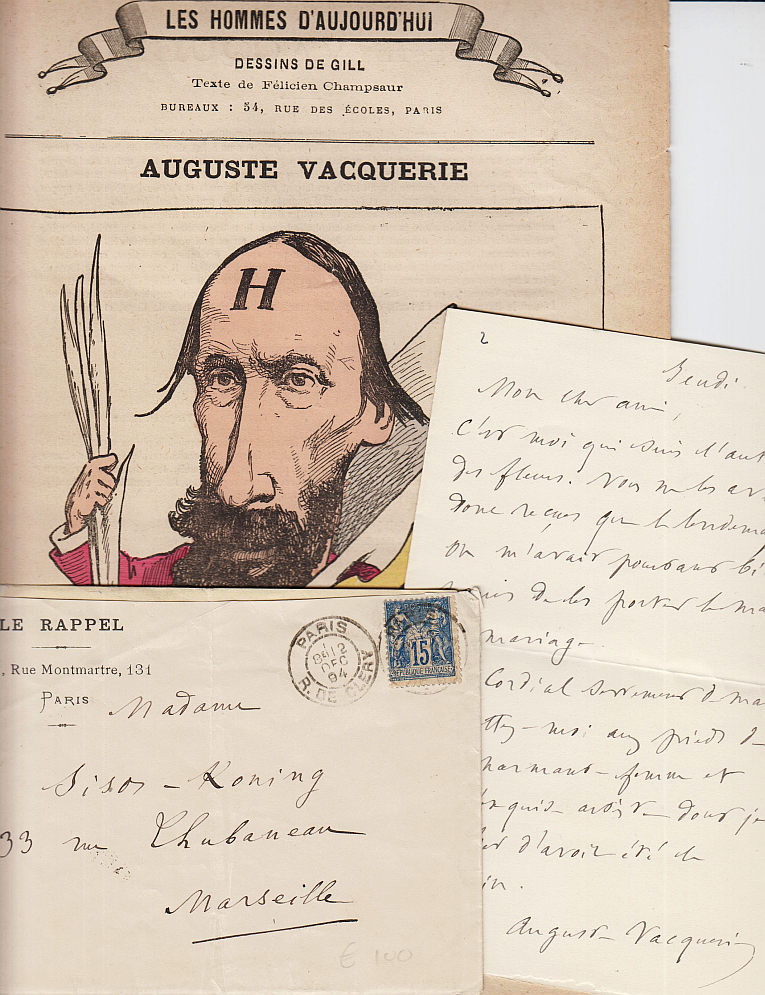 LES HOMMES D'AUJOURD'HUI
DESSINS DE GILL
Texte de Félicien Champsaur
BUREAUX : 54, RUE DES ÉCOLES, PARIS
AUGUSTE VACQUERIE
H
2
Jeudi.
Mon cher ami,
C'est moi qui suis l'aut
des fleurs. Vous ne les av
donc reçues que le lendema
On m'avait pourtant bi
de les porter le ma
mariage.
Cordial serrement de ma
ttez-moi aux pieds d
harmante femme et
artiste dont je
d'avoir été le
in.
Auguste Vacquerie
LE RAPPEL
, Rue Montmartre, 131
PARIS
PARIS
12
DEC
94
R. DE CLERY
15
REPUBLIQUE FRANÇAISE
Madame
Sisos-Koning
33 rue Thubaneau
Marseille
€ 100